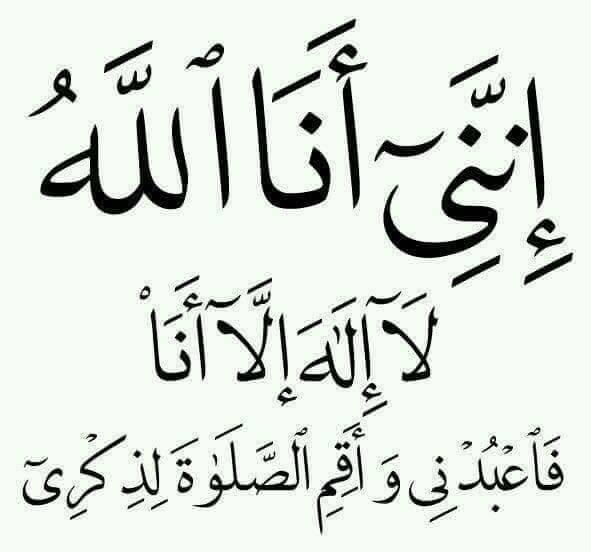 إِنَّنِيٓ أَنَا ٱللَّهُ
لَآ إِلَٰهَ إِلَّآ أَنَا۠
فَٱعْبُدْنِي وَ أَقِمِ ٱلصَّلَوٰةَ لِذِكْرِيٓ